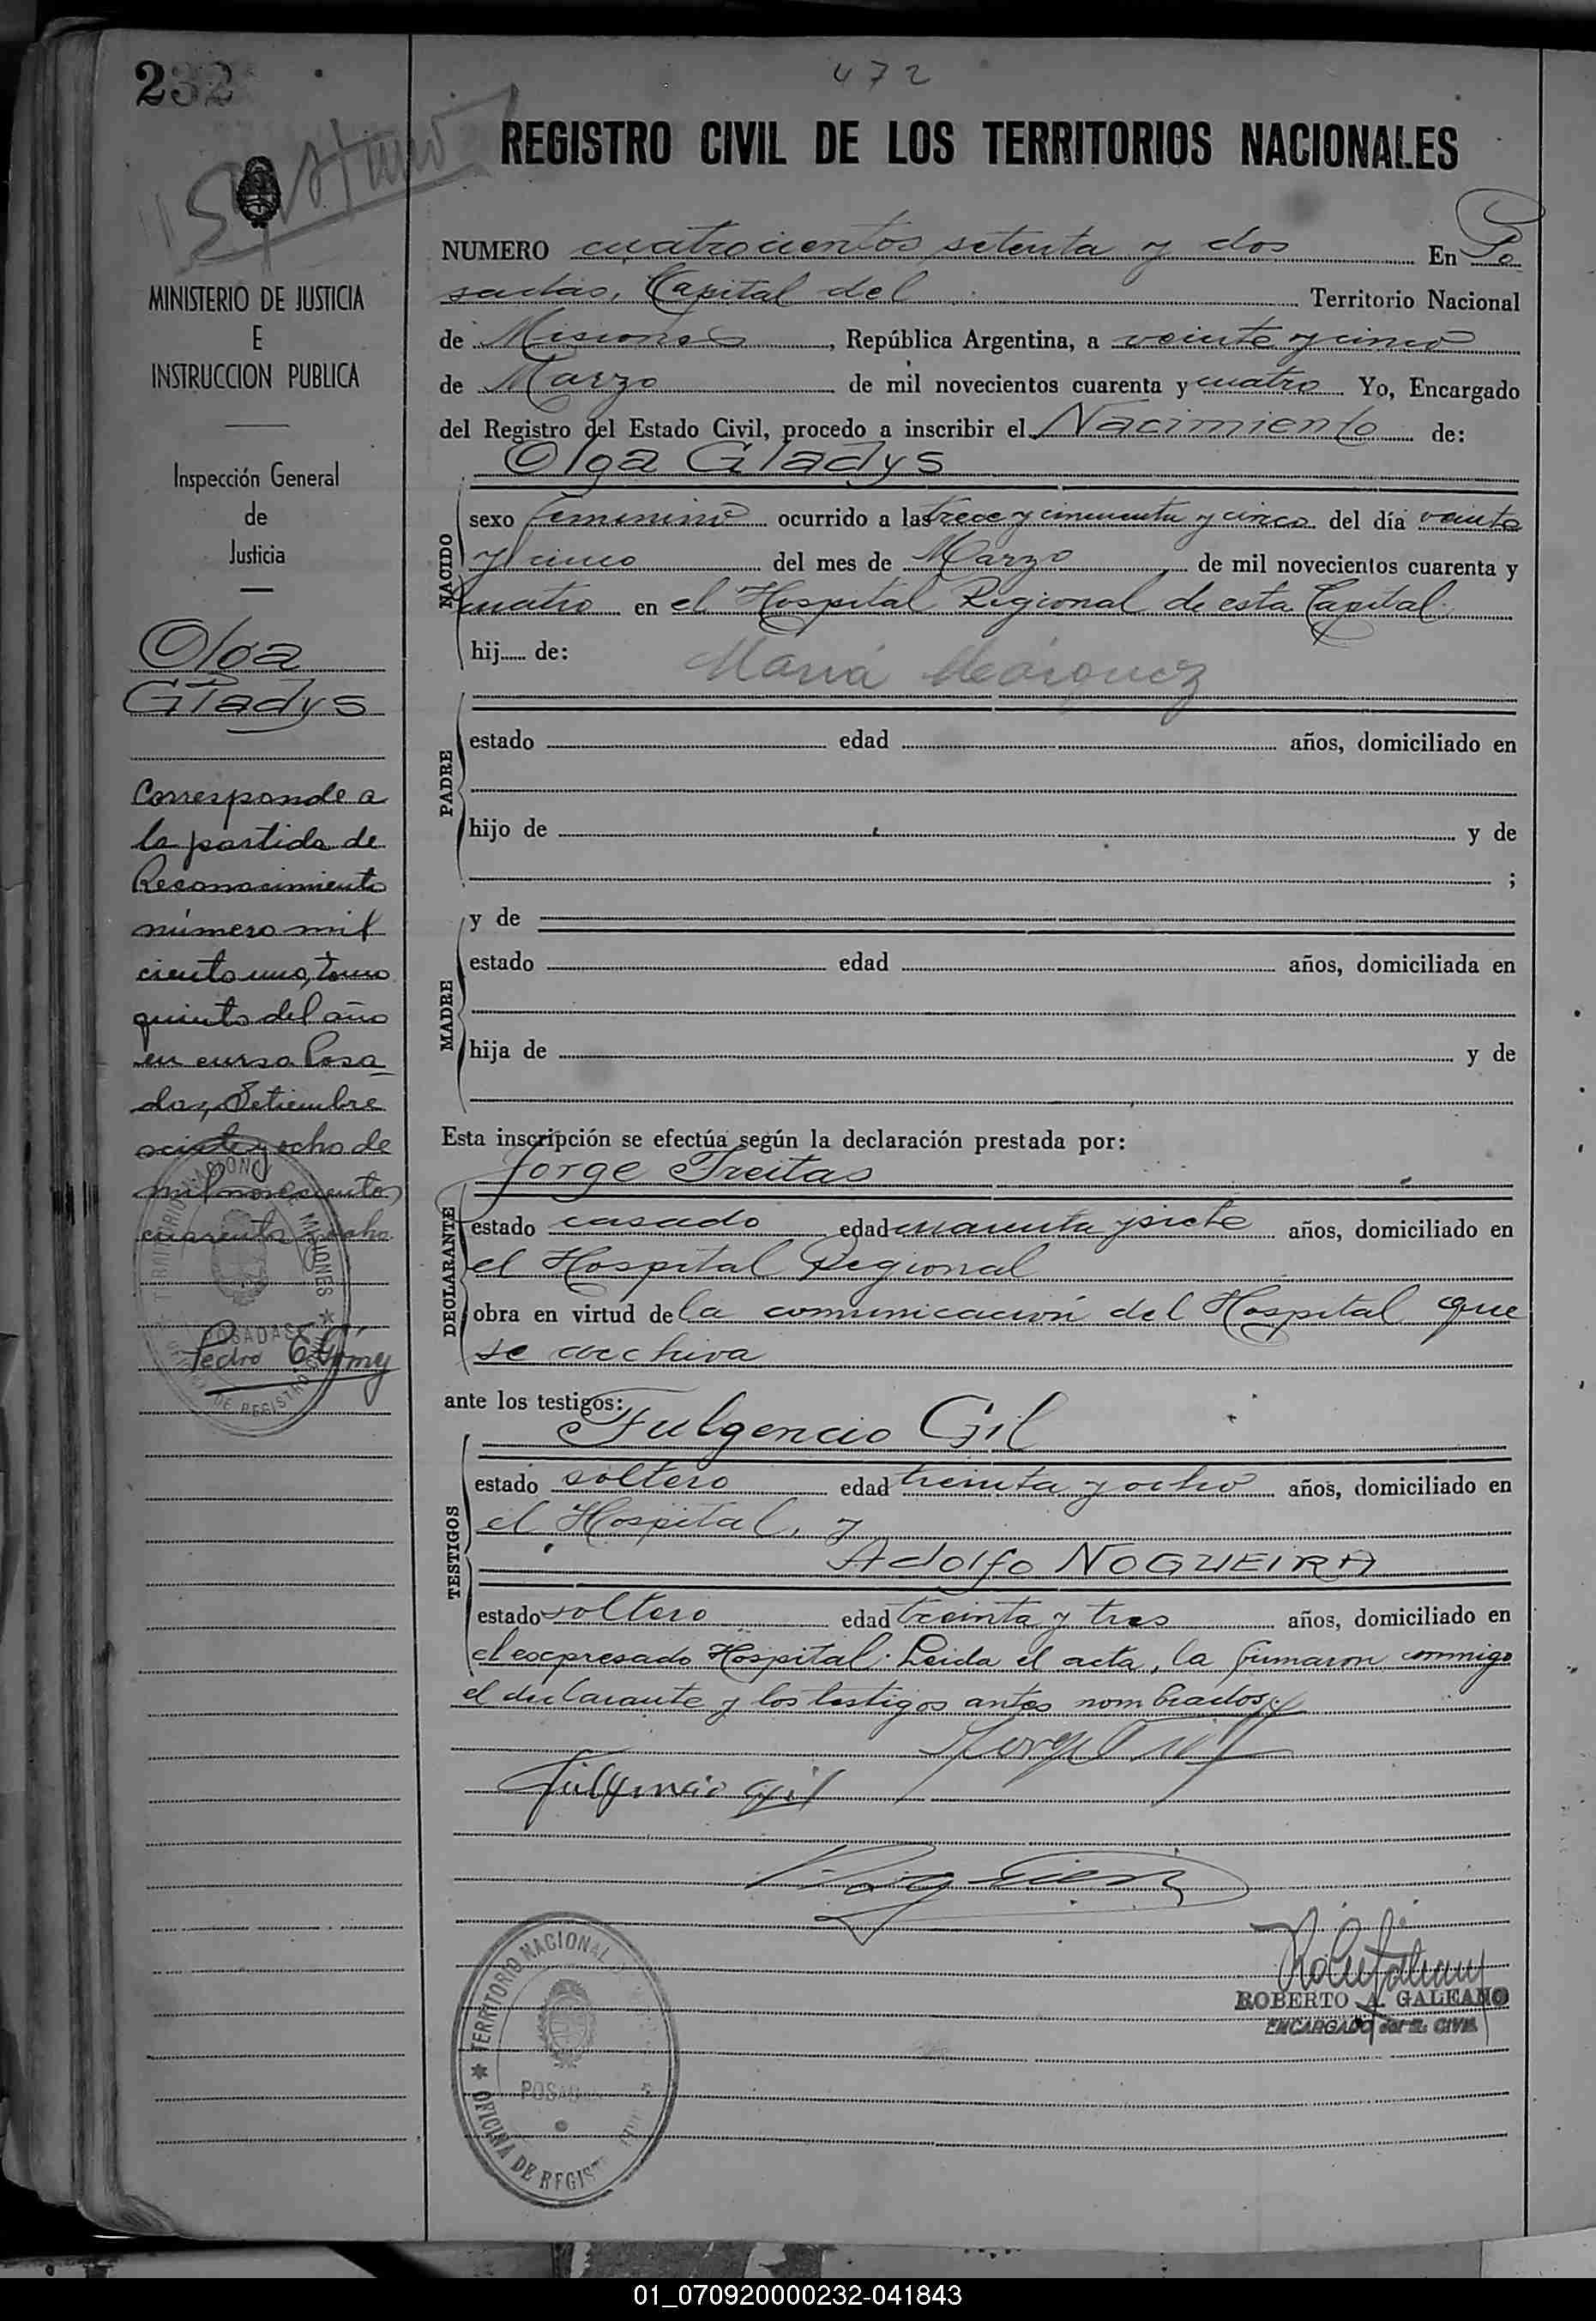 232
472
REGISTRO CIVIL DE LOS TERRITORIOS NACIONALES
MINISTERIO DE JUSTICIA
E
INSTRUCCION PUBLICA
Inspección General
de
Justicia
Olga
Gladys
Corresponde a
la partida de
Reconocimiento
número mil
ciento uno, tomo
quinto del año
en curso Posa
das, Setiembre
y ocho de
mil novecientos
cuarenta y ocho
Pedro
NUMERO cuatrocientos setenta y dos En Po
sadas, Capital del Territorio Nacional
de Misiones, República Argentina, a veinte y cinco
de Marzo de mil novecientos cuarenta y cuatro Yo, Encargado
del Registro del Estado Civil, procedo a inscribir el Nacimiento de:
Olga Gladys
NACIDO
sexo femenino ocurrido a las trece y cincuenta y cinco del día veinte
y cinco del mes de Marzo de mil novecientos cuarenta y
cuatro en el Hospital Regional de esta Capital.
hij de:
María Márquez
PADRE
estado edad años, domiciliado en
hijo de y de
;
MADRE
y de
estado edad años, domiciliada en
hija de y de
Esta inscripción se efectúa según la declaración prestada por:
Jorge Freitas
DECLARANTE
estado casado edad cuarenta y siete años, domiciliado en
el Hospital Regional
obra en virtud de la comunicación del Hospital que
se archiva
ante los testigos:
Fulgencio Gil
TESTIGOS
estado soltero edad treinta y ocho años, domiciliado en
el Hospital, y
Adolfo NOGUEIRA
estado soltero edad treinta y tres años, domiciliado en
el expresado Hospital. Leida el acta, la firmaron conmigo
el declarante y los testigos antes nombrados.
Fulgencio Gil
TERRITORIO NACIONAL
POSADAS
OFICINA DE REGIST
ROBERTO A. GALEANO
ENCARGADO del R. CIVIL
01_070920000232-041843